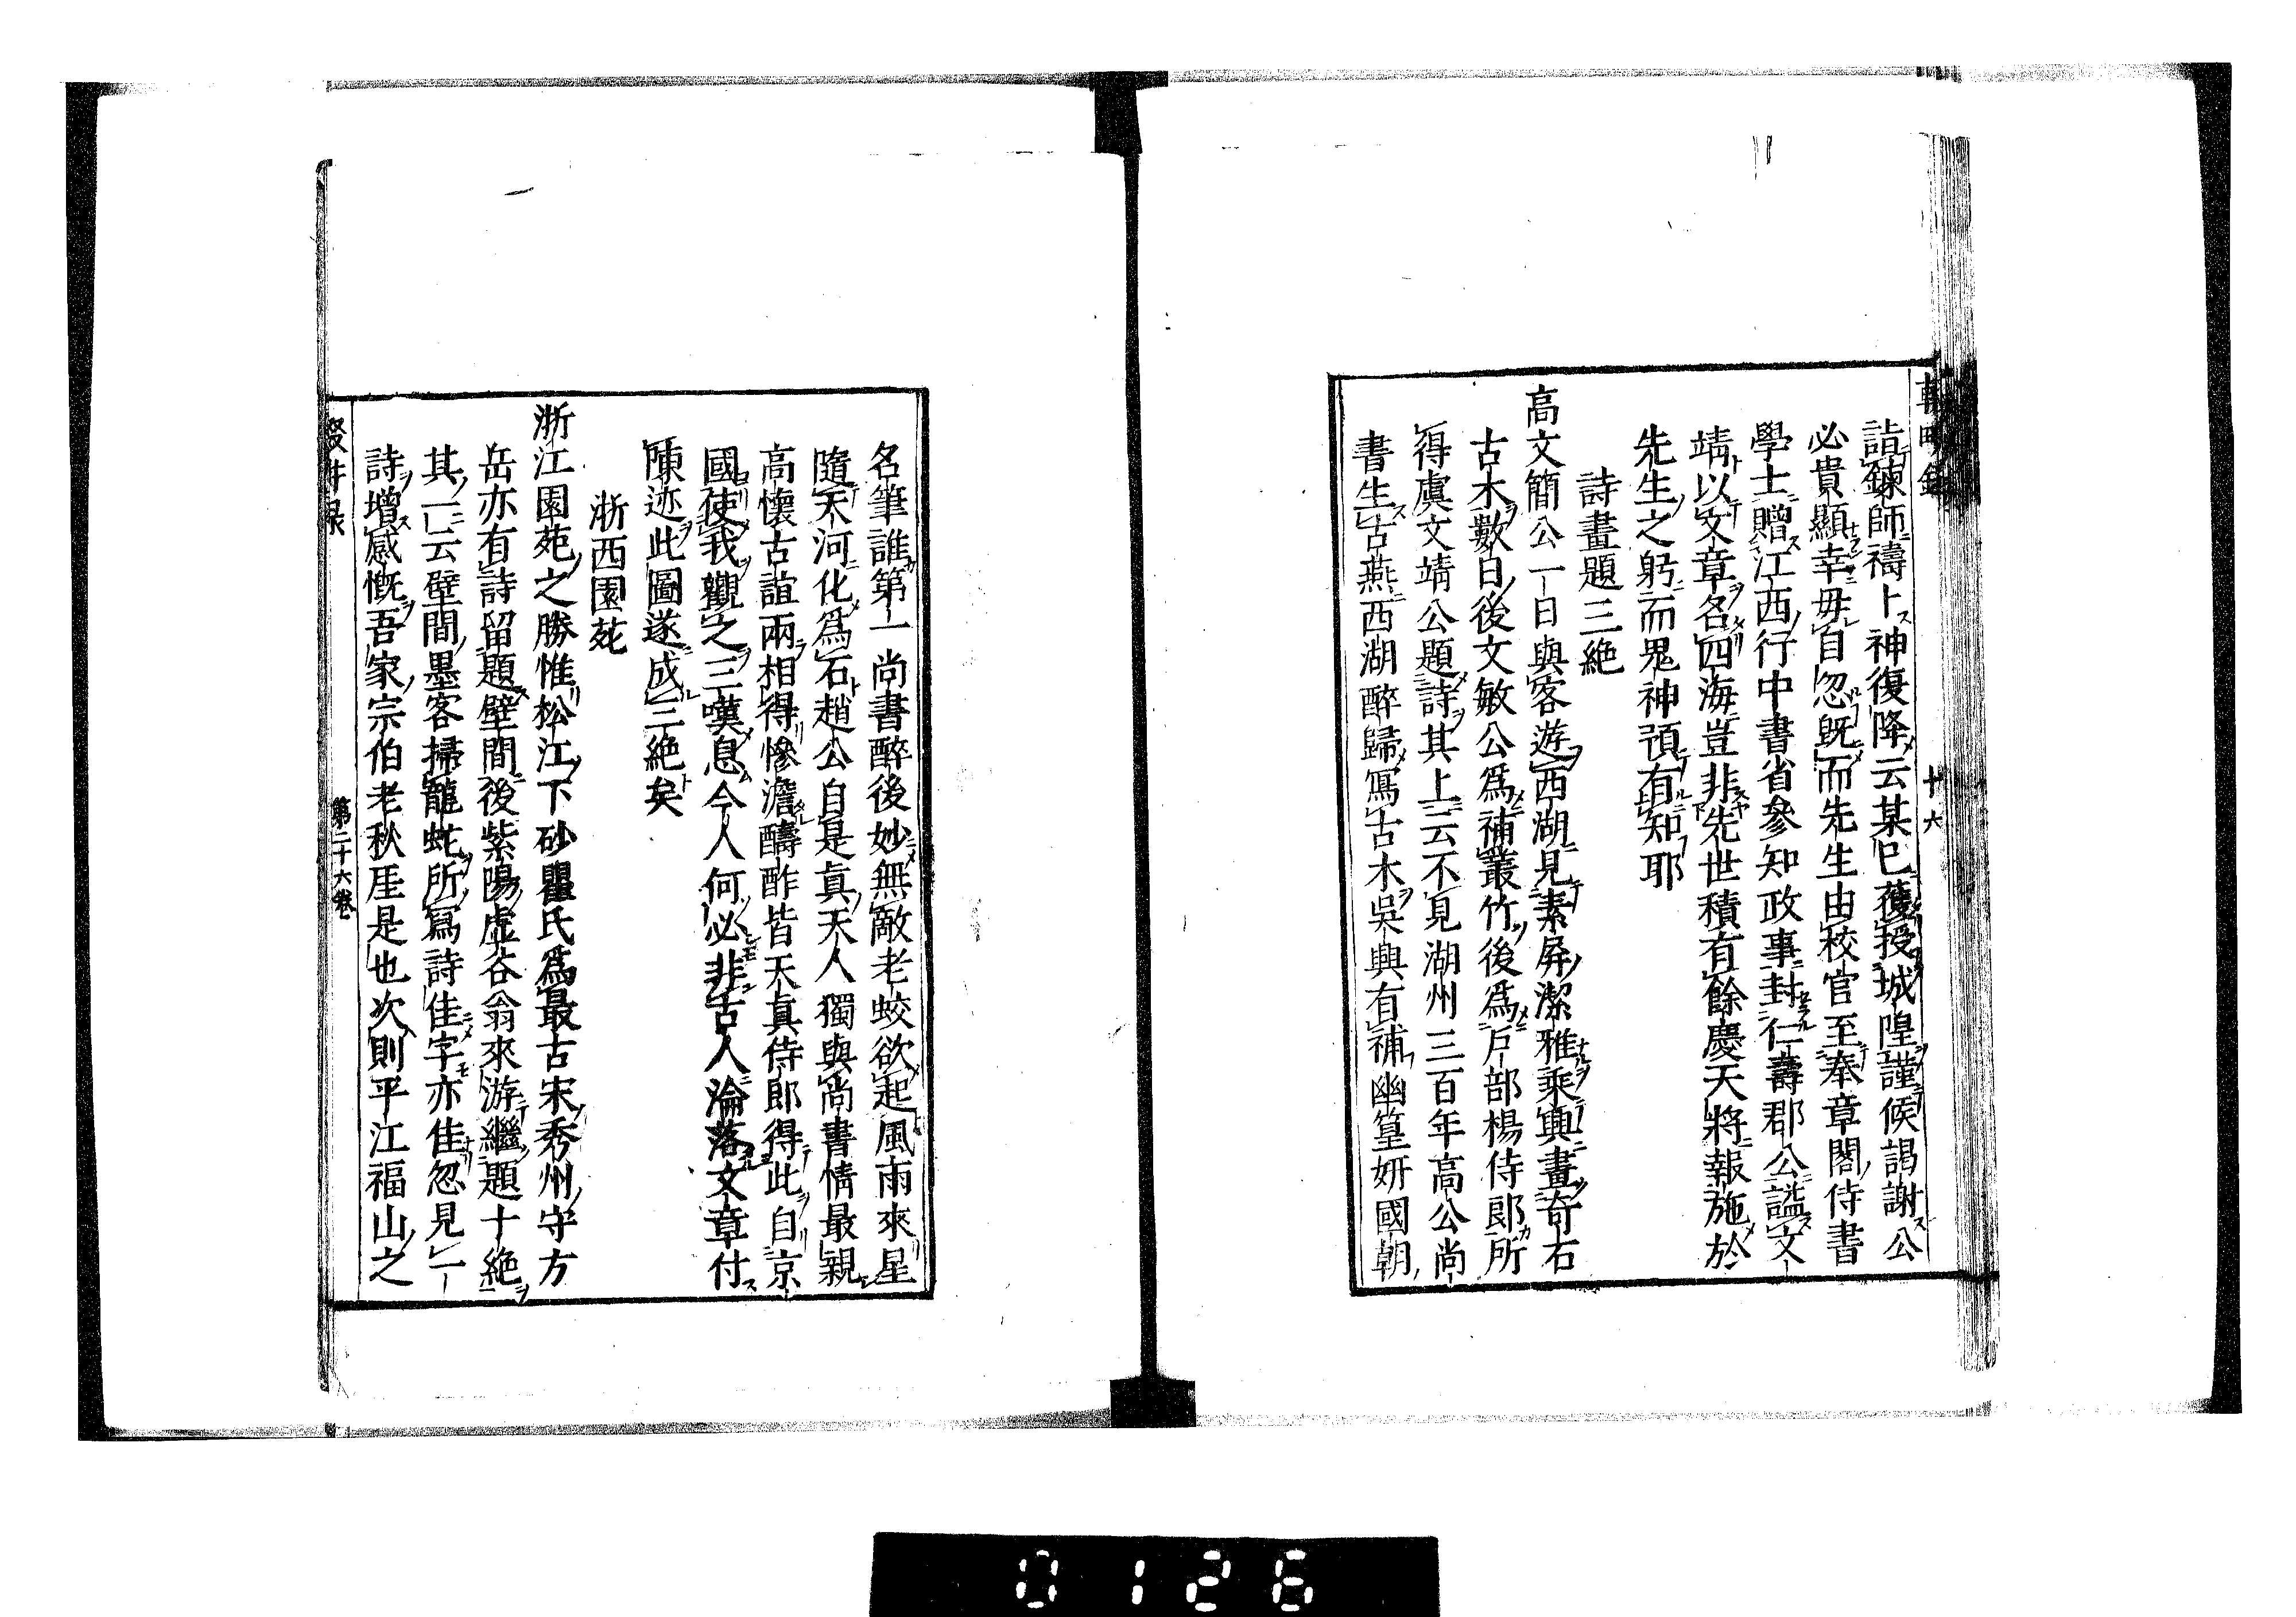 詣錬師禱卜神復降云某已獲授城隍謹候謁謝公
必貴顯幸毋自忽既而先生由校官至奉章閣侍書
學士贈江西行中書省參知政事封仁壽郡公謚文
靖以文章名四海豈非先世積有餘慶天將報施於
先生之躬而鬼神預有知耶
詩畫題三絶
高文簡公一日與客游西湖見素屏潔雅乘興畫奇石
古木數日後文敏公爲補叢竹後爲戸部楊侍郎所
得虞文靖公題詩其上云不見湖州三百年高公尚
書生古燕西湖醉歸寫古木吳興有補幽篁妍國朝
十六
名筆誰第一尚書醉後妙無敵老蛟欲起風雨來星
隨天河化爲石趙公自是眞天人獨與尚書情最親
高懷古誼兩相得慘澹醻酢皆天眞侍郎得此自京
國使我觀之三嘆息今人何必非古人淪落文章付
陳迹此圖遂成三絶矣
浙西園苑
浙江園苑之勝惟松江下砂瞿氏爲最古宋秀州守方
岳亦有詩留題壁間後紫陽虚谷翁來游繼題十絶
其一云壁間墨客掃龍蛇所寫詩佳字亦佳忽見一
詩增感慨吾家宗伯老秋厓是也次則平江福山之
第二十六卷
0126